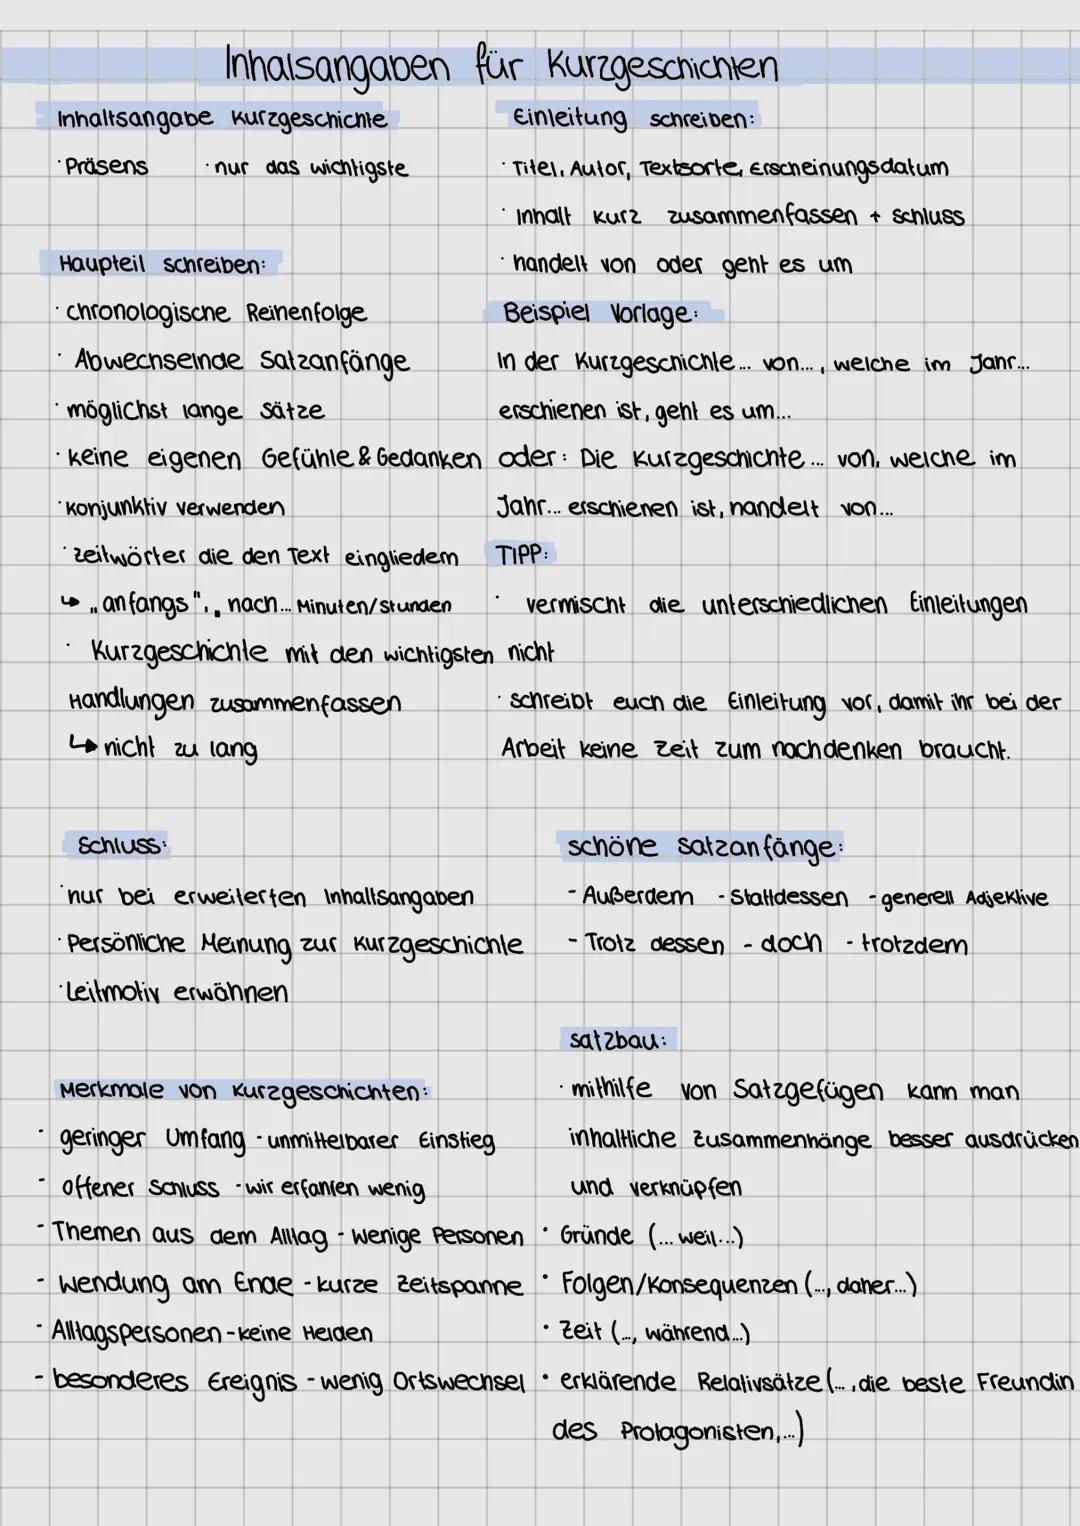 Inhalsangaben für Kurzgeschichten
Inhaltsangabe Kurzgeschichte
· Präsens · nur das wichtigste
Haupteil schreiben:
· chronologische Reihenfolge
· Abwechselnde Satzanfänge
· möglichst lange Sätze
· keine eigenen Gefühle & Gedanken
· Konjunktiv verwenden
· Zeitwörter die den Text eingliedern
↳ „anfangs", „nach... Minuten/Stunden
· Kurzgeschichte mit den wichtigsten nicht
Handlungen zusammenfassen
↳ nicht zu lang
Einleitung schreiben:
· Titel, Autor, Textsorte, Erscheinungsdatum
· Inhalt kurz zusammenfassen + schluss
· handelt von oder geht es um
Beispiel Vorlage:
In der Kurzgeschichte... von..., welche im Jahr...
erschienen ist, geht es um...
oder: Die Kurzgeschichte... von, welche im
Jahr... erschienen ist, handelt von...
TIPP:
· vermischt die unterschiedlichen Einleitungen
· schreibt euch die Einleitung vor, damit ihr bei der
Arbeit keine Zeit zum nachdenken braucht.
Schluss:
· nur bei erweiterten Inhaltsangaben
· Persönliche Meinung zur Kurzgeschichte
· Leitmotiv erwähnen
schöne Satzanfänge:
- Außerdem - Stattdessen - generell Adjektive
- Trotz dessen - doch - trotzdem
Merkmale von Kurzgeschichten:
· geringer Umfang - unmittelbarer Einstieg
- offener Schluss - wir erfahren wenig
- Themen aus dem Alltag - Wenige Personen
- Wendung am Ende - kurze Zeitspanne
- Alltagspersonen - keine Helden
- besonderes Ereignis - wenig Ortswechsel
Satzbau:
· mithilfe von Satzgefügen kann man
inhaltliche Zusammenhänge besser ausdrücken
und verknüpfen
· Gründe (... weil...)
· Folgen/Konsequenzen (..., daher...)
· Zeit (..., während...)
· erklärende Relativsätze (..., die beste Freundin
des Protagonisten,...)